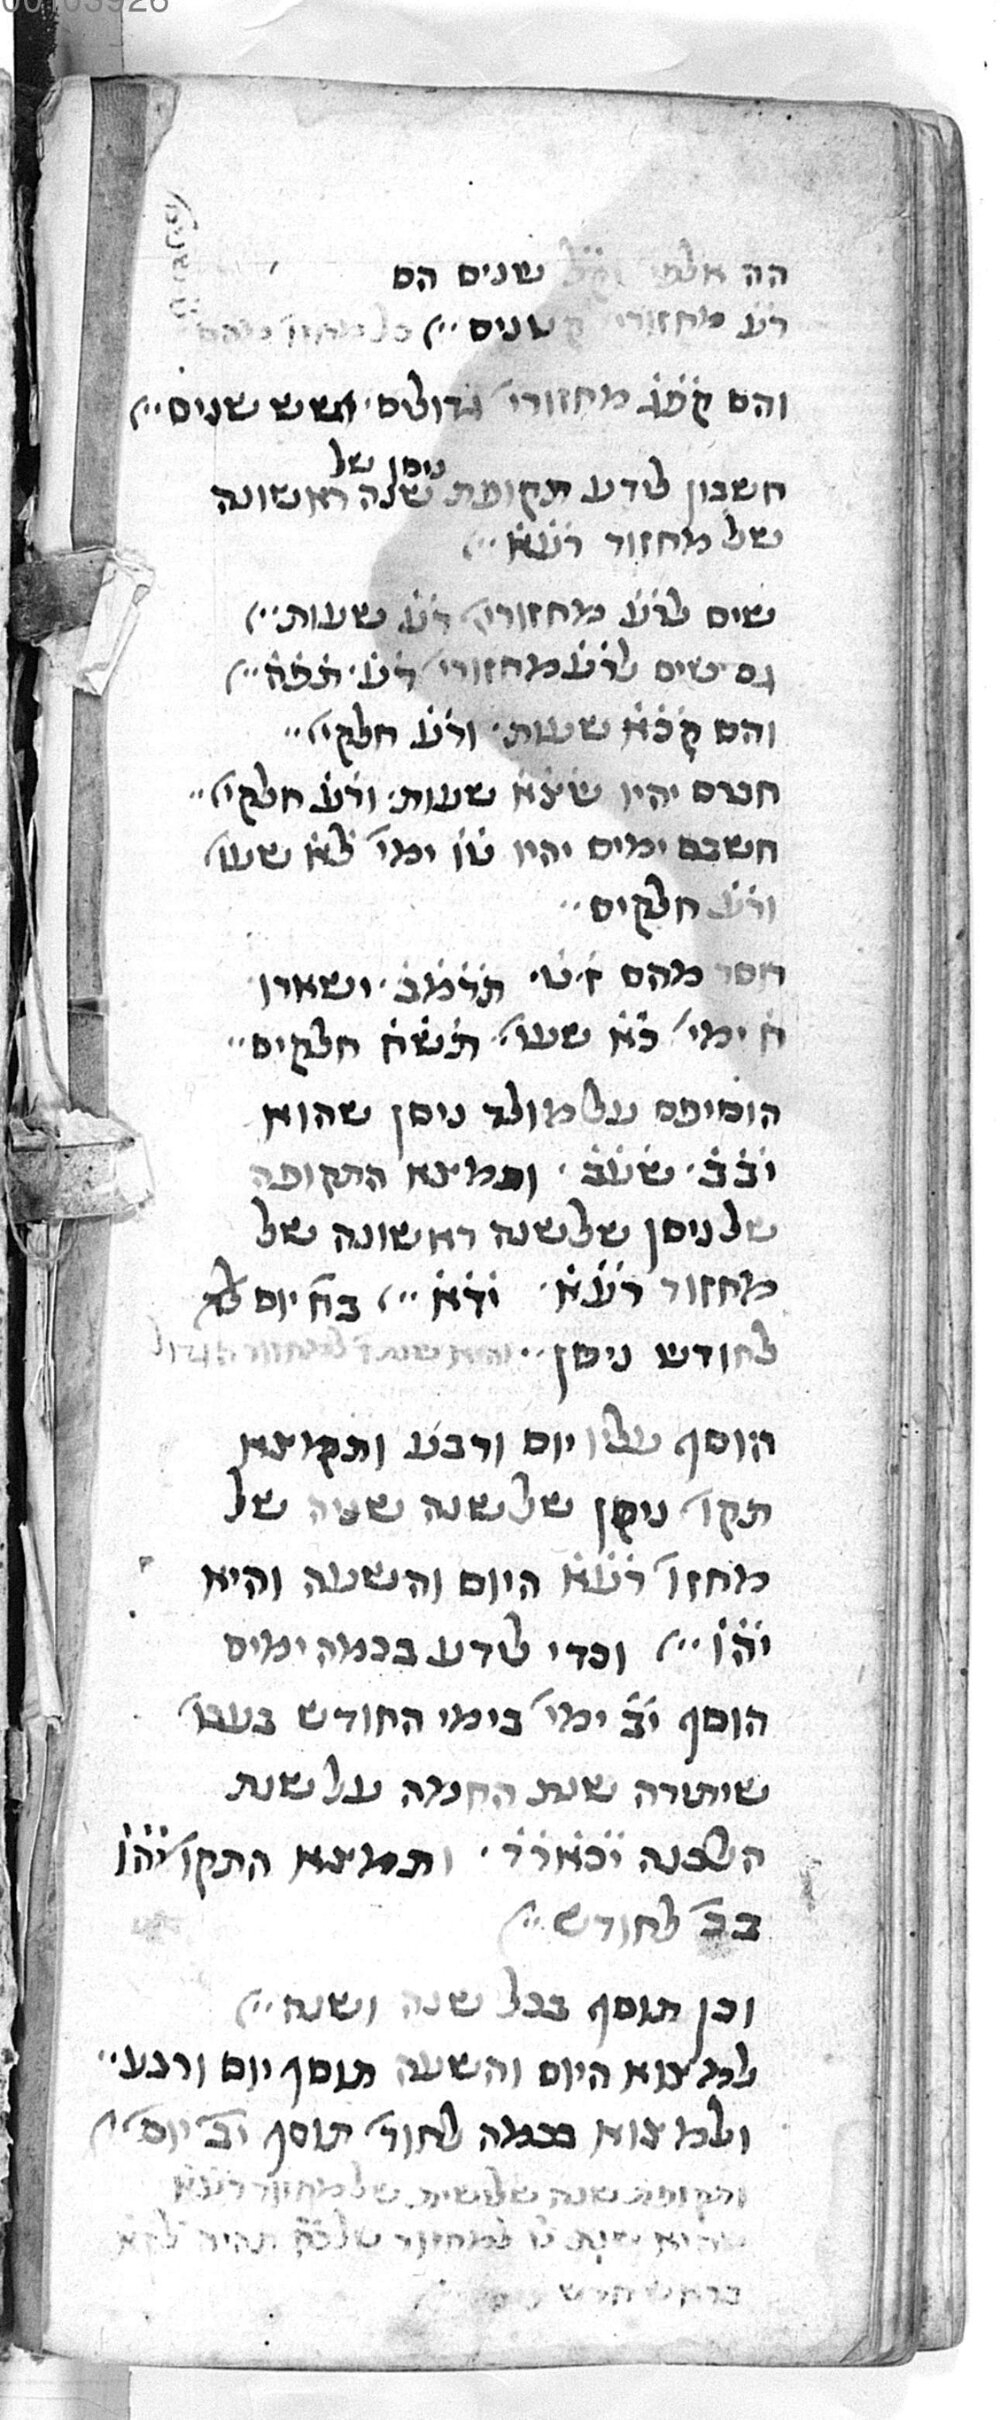 הה אלפי וק̇ל̇ שנים הם
ר̇ע̇ מחזורי׳ קטנים׳׳ כל מחזו׳ מהם
והם ק̇פ̇ג̇ מחזורי׳ גדולים׳ ושש שנים׳׳
ניסן של
חשבון לידע תקופת שנה ראשונה
של מחזור ר̇ע̇א̇׳׳
שים לר̇ע̇ מחזורי׳ ר̇ע̇ שעות׳׳
גם שים לר̇ע̇ מחזורי׳ ר̇ע̇׳ ת̇פ̇ה̇׳׳
והם ק̇כ̇א̇ שעות׳ ור̇ע̇ חלקי׳׳׳
חברם יהיו ש̇צ̇א̇ שעות׳ ור̇ע̇ חלקי׳׳׳
חשבם ימים יהיו ט̇ו̇ ימי׳ ל̇א̇ שעו׳
ור̇ע̇ חלקים׳׳
חסר מהם ז̇׳ט̇׳ ת̇ר̇מ̇ב̇׳ וישארו
ח̇ ימי׳ כ̇א̇ שעו׳ ת̇ש̇ח̇ חלקים׳׳
הוסיפם על מולד ניסן שהוא
י̇ב̇ב̇׳ ש̇ע̇ב̇׳ ותמצא התקופה
של ניסן של שנה ראשונה של
מחזור ר̇ע̇א̇׳ י̇ד̇א̇׳׳ בח̇ יום
לחודש ניסן׳׳
הוסף עליו יום ורבע ותמצא
תקו׳ ניסן של שנה שניה של
מחזו׳ ר̇ע̇א̇ היום והשעה והיא
י̇ה̇ו̇׳׳ וכדי לידע בכמה ימים
הוסף י̇ב̇ ימי׳ בימי החודש בעבו׳
שיתרה שנת החמה על שנת
הלבנה י̇כ̇א̇ר̇ד̇׳ ותמצא התקו׳ י̇ה̇ו̇
בכ̇ לחודש׳׳
וכן תוסף בכל שנה ושנה׳׳
למצוא היום והשעה תוסף יום ורבע׳׳
ולמצוא בכמה לחוד׳ תוסף י̇ב̇ יום׳׳
ותקופת שנה שלישית של מחזור ר̇ע̇א̇